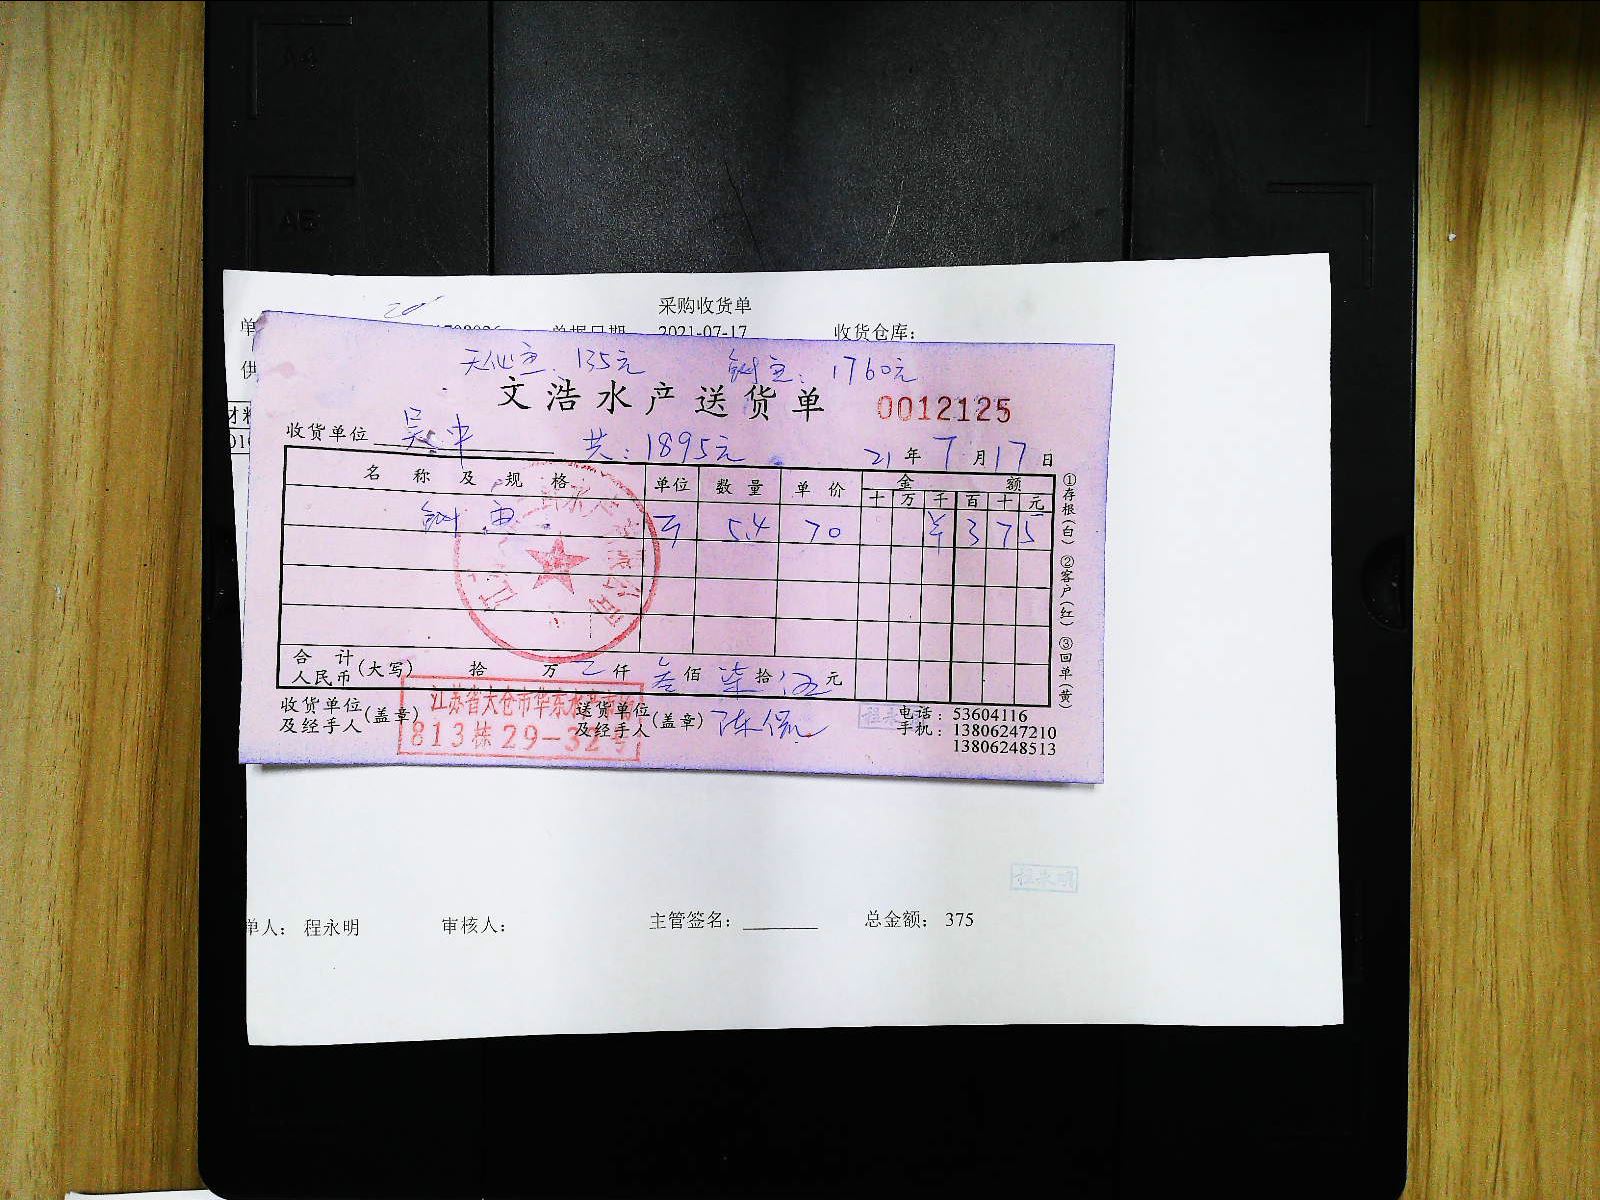 A4
A5
采购收货单
单据日期 2021-07-17 收货仓库：
供
材料
天仙鱼：135元 鲥鱼：1760元
文浩水产送货单 0012125
收货单位 吴中 共：1895元 21年7月17日
名称及规格 单位 数量 单价 金额
十 万 千 百 十 元
鲥鱼 54 70 ¥ 3 7 5
合计
人民币(大写) 拾 万 仟 叁佰柒拾伍元
收货单位
及经手人(盖章)
送货单位
及经手人(盖章)
江苏省太仓市华东水产市场
813栋29-32号
电话：53604116
手机：13806247210
13806248513
①存根(白) ②客户(红) ③回单(黄)
程永明
单人： 程永明 审核人： 主管签名： 总金额： 375